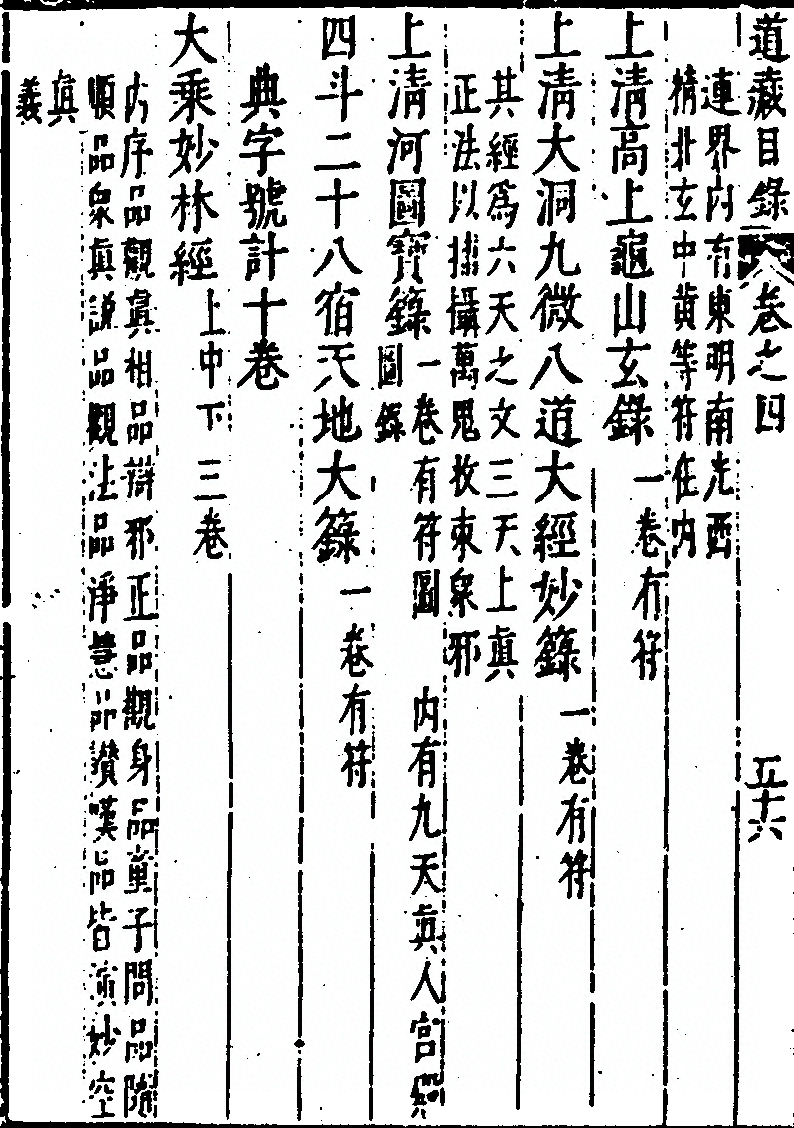 道藏目錄 卷之四 五十六
連界內有東明南光西
精北玄中黃等符在內
上清高上龜山玄錄 一卷有符
上清大洞九微八道大經妙籙 一卷有符
其經爲六天之文三天上真
正法以 攝萬鬼收束衆邪
上清河圖寶籙 一卷有符圖 內有九天真人宫
圖籙
四斗二十八宿天地大籙 一卷有符
典字號計十卷
大乘妙林經 上中下三卷
內序品觀真相品辯邪正品觀身品童子問品隨
順品衆真說品觀法品淨慧品讚嘆品皆演妙空
真
義